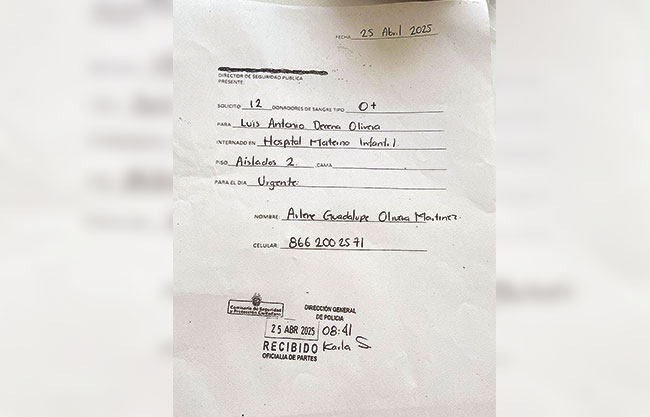 FECHA 25 Abril 2025
DIRECTOR DE SEGURIDAD PÚBLICA
PRESENTE.
SOLICITO 12 DONADORES DE SANGRE TIPO O+
PARA Luis Antonio Derena Olivera
INTERNADO EN Hospital Materno Infantil.
PISO Aislados 2. CAMA
PARA EL DIA Urgente.
NOMBRE: Arlene Guadalupe Olivera Martinez.
CELULAR: 866 200 2571
Comisaría de Seguridad
y Protección Ciudadana
DIRECCIÓN GENERAL
DE POLICIA
25 ABR 2025 08:41
RECIBIDO Karla S
OFICIALIA DE PARTES